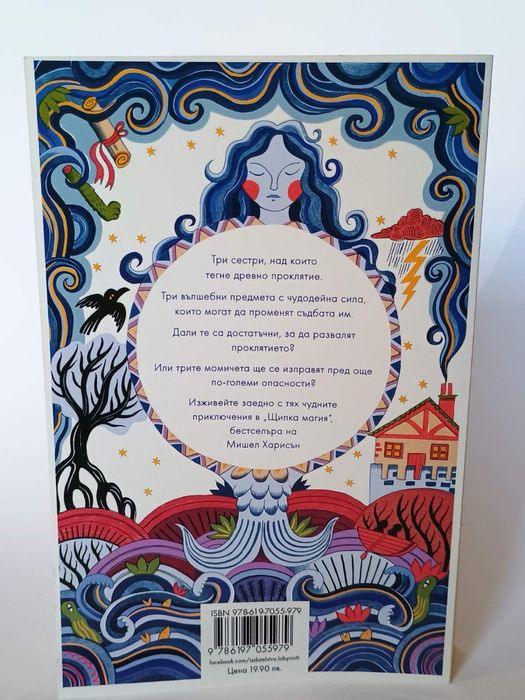 Три сестри, над които
тегне древно проклятие.
Три вълшебни предмета с чудодейна сила,
които могат да променят съдбата им.
Дали те са достатъчни, за да развалят
проклятието?
Или трите момичета ще се изправят пред още
по-големи опасности?
Изживейте заедно с тях чудните
приключения в „Щипка магия“,
бестселъра на
Мишел Харисън
ISBN 978-619-7055-979
9 786197 055979
facebook.com/izdatelstvo.labyrinth
Цена 19.90 лв.